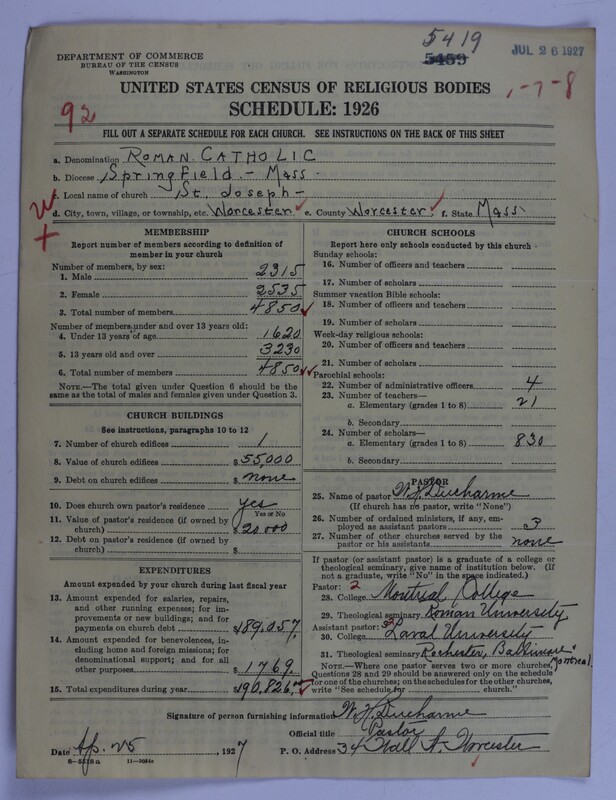 5419
5459
JUL 26 1927
DEPARTMENT OF COMMERCE
BUREAU OF THE CENSUS
WASHINGTON
1-7-8
92
UNITED STATES CENSUS OF RELIGIOUS BODIES
SCHEDULE: 1926
FILL OUT A SEPARATE SCHEDULE FOR EACH CHURCH. SEE INSTRUCTIONS ON THE BACK OF THIS SHEET
a. Denomination Roman Catholic
b. Diocese Springfield - Mass.
c. Local name of church St. Joseph -
d. City, town, village, or township, etc. Worcester e. County Worcester f. State Mass.
MEMBERSHIP
Report number of members according to definition of
member in your church
Number of members, by sex:
1. Male 2315
2. Female 2535
3. Total number of members 4850
Number of members under and over 13 years old:
4. Under 13 years of age 1620
5. 13 years old and over 3230
6. Total number of members 4850
NOTE.—The total given under Question 6 should be
the same as the total of males and females given under Question 3.
CHURCH BUILDINGS
See instructions, paragraphs 10 to 12
7. Number of church edifices 1
8. Value of church edifices $55,000
9. Debt on church edifices $none
10. Does church own pastor's residence yes
Yes or No
11. Value of pastor's residence (if owned by
church) $20.000
12. Debt on pastor's residence (if owned by
church) $
EXPENDITURES
Amount expended by your church during last fiscal year
13. Amount expended for salaries, repairs,
and other running expenses; for im-
provements or new buildings; and for
payments on church debt $89,057.
14. Amount expended for benevolences, in-
cluding home and foreign missions; for
denominational support; and for all
other purposes 1769.
15. Total expenditures during year $90,826.
CHURCH SCHOOLS
Report here only schools conducted by this church
Sunday schools:
16. Number of officers and teachers
17. Number of scholars
Summer vacation Bible schools:
18. Number of officers and teachers
19. Number of scholars
Week-day religious schools:
20. Number of officers and teachers
21. Number of scholars
Parochial schools:
22. Number of administrative officers 4
23. Number of teachers—
a. Elementary (grades 1 to 8) 21
b. Secondary
24. Number of scholars—
a. Elementary (grades 1 to 8) 830
b. Secondary
PASTOR
25. Name of pastor W. J. Ducharme
(If church has no pastor, write "None")
26. Number of ordained ministers, if any, em-
ployed as assistant pastors 3
27. Number of other churches served by the
pastor or his assistants none
If pastor (or assistant pastor) is a graduate of a college or
theological seminary, give name of institution below. (If
not a graduate, write "No" in the space indicated.)
Pastor: 2
28. College Montreal College
29. Theological seminary Roman University
Assistant pastor:
30. College Laval University
31. Theological seminary Rochester, Baltimore
Montreal.
NOTE.—Where one pastor serves two or more churches,
Questions 28 and 29 should be answered only on the schedule
for one of the churches; on the schedules for the other churches,
write "See schedule for church."
Signature of person furnishing information W. J. Ducharme
Official title Pastor
Date Ap. 25, 1927 P. O. Address 34 Hall St. Worcester
8-5518a 11-9084a